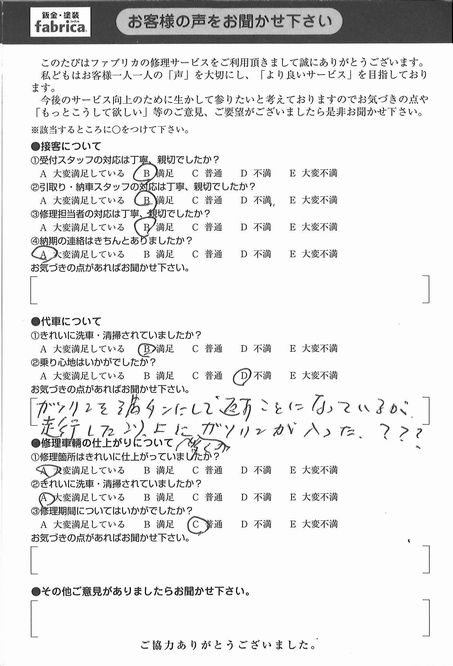 鈑金・塗装
fabrica.
お客様の声をお聞かせ下さい
このたびはファブリカの修理サービスをご利用頂きまして誠にありがとうございます。
私どもはお客様一人一人の「声」を大切にし、「より良いサービス」を目指しており
ます。
今後のサービス向上のために生かして参りたいと考えておりますのでお気づきの点や
「もっとこうして欲しい」等のご意見、ご要望がございましたら是非お聞かせ下さい。
※該当するところに○をつけて下さい。
●接客について
①受付スタッフの対応は丁寧、親切でしたか？
A 大変満足している B 満足 C 普通 D 不満 E 大変不満
②引取り・納車スタッフの対応は丁寧、親切でしたか？
A 大変満足している B 満足 C 普通 D 不満 E 大変不満
③修理担当者の対応は丁寧、親切でしたか？
A 大変満足している B 満足 C 普通 D 不満 E 大変不満
④納期の連絡はきちんとありましたか？
A 大変満足している B 満足 C 普通 D 不満 E 大変不満
お気づきの点があればお聞かせ下さい。
●代車について
①きれいに洗車・清掃されていましたか？
A 大変満足している B 満足 C 普通 D 不満 E 大変不満
②乗り心地はいかがでしたか？
A 大変満足している B 満足 C 普通 D 不満 E 大変不満
お気づきの点があればお聞かせ下さい。
ガソリンを満タンにして返すことになっているが、
走行した以上にガソリンが入った、???
●修理車輌の仕上がりについて
①修理箇所はきれいに仕上がっていましたか？
A 大変満足している B 満足 C 普通 D 不満 E 大変不満
②きれいに洗車・清掃されていましたか？
A 大変満足している B 満足 C 普通 D 不満 E 大変不満
③修理期間についてはいかがでしたか？
A 大変満足している B 満足 C 普通 D 不満 E 大変不満
お気づきの点があればお聞かせ下さい。
●その他ご意見がありましたらお聞かせ下さい。
ご協力ありがとうございました。